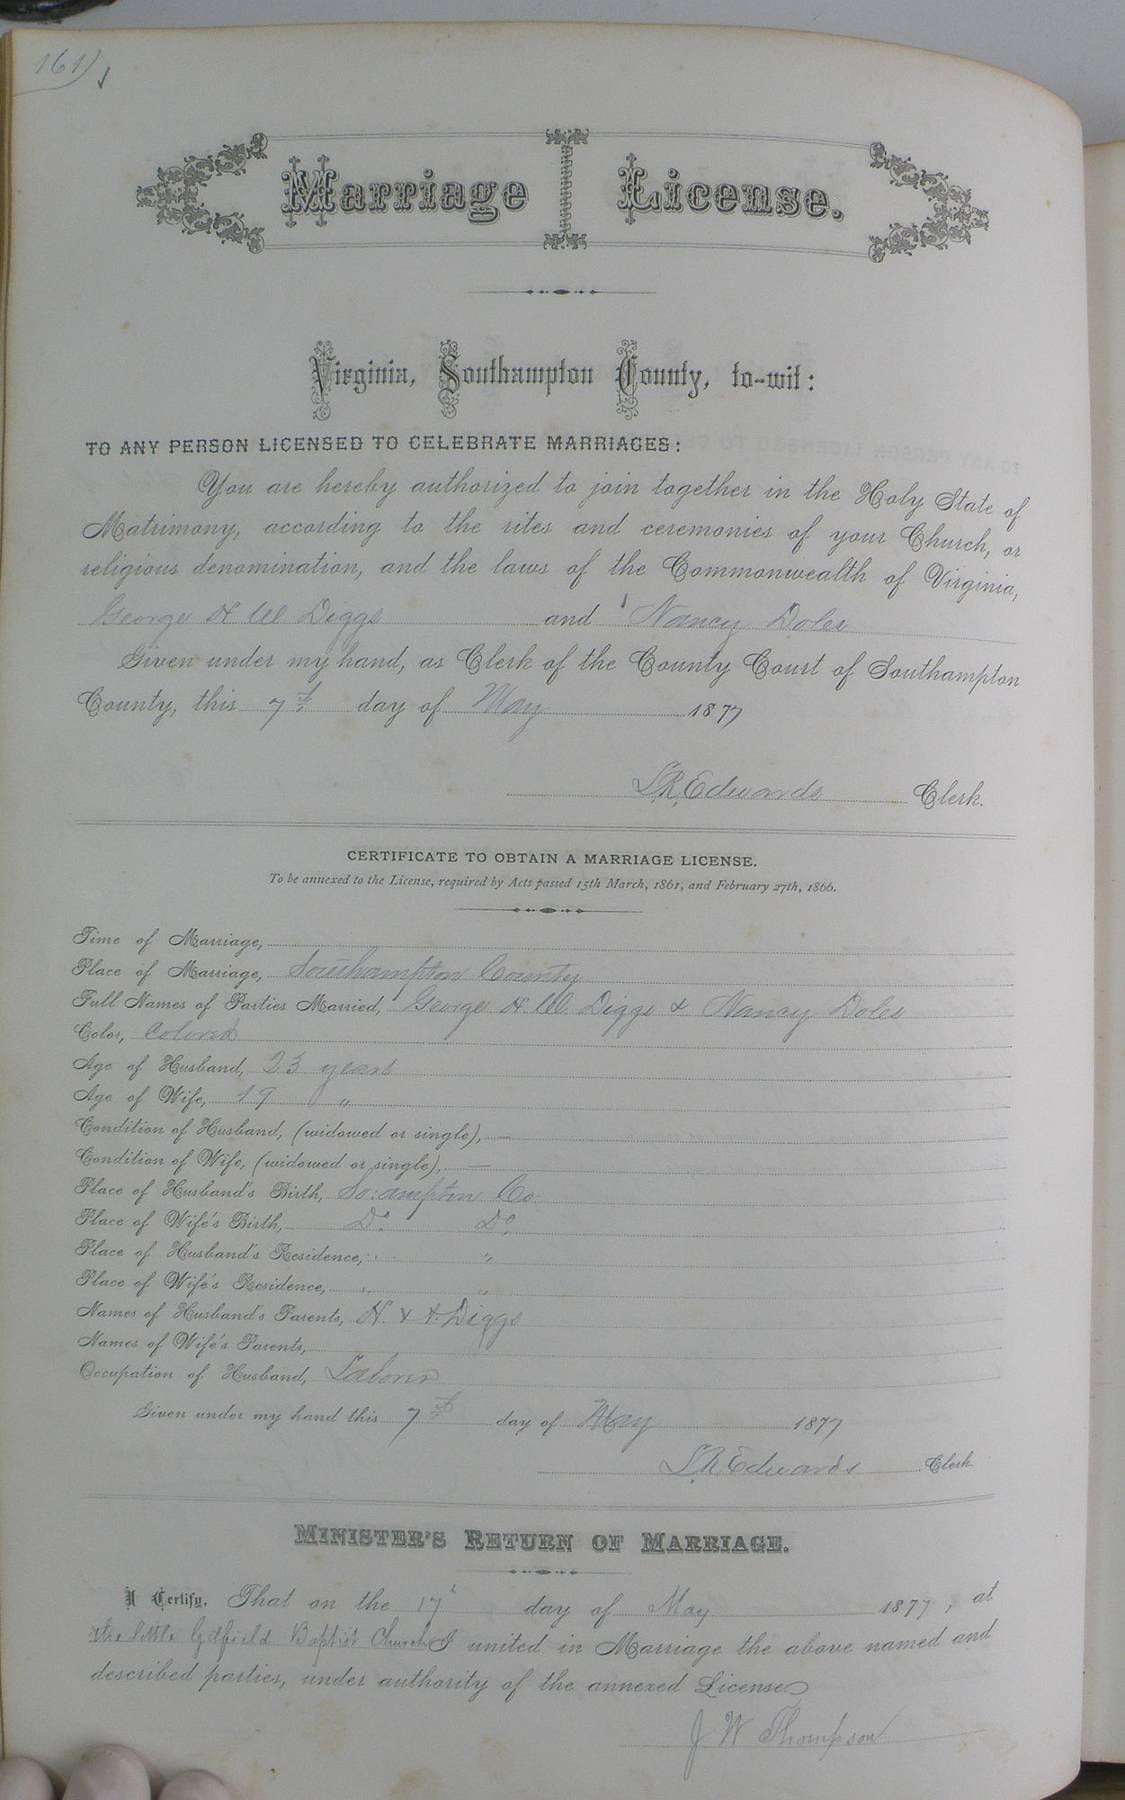 161)
Marriage License.
Virginia, Southampton County, to-wit:
TO ANY PERSON LICENSED TO CELEBRATE MARRIAGES:
You are hereby authorized to join together in the Holy State of
Matrimony, according to the rites and ceremonies of your Church, or
religious denomination, and the laws of the Commonwealth of Virginia,
George H. W. Diggs and Nancy Doles
Given under my hand, as Clerk of the County Court of Southampton
County, this 7th day of May 1877
L.R. Edwards Clerk.
CERTIFICATE TO OBTAIN A MARRIAGE LICENSE.
To be annexed to the License, required by Acts passed 15th March, 1861, and February 27th, 1866.
Time of Marriage,
Place of Marriage, Southampton County
Full Names of Parties Married, George H. W. Diggs & Nancy Doles
Color, Colored
Age of Husband, 23 years
Age of Wife, 19 "
Condition of Husband, (widowed or single), —
Condition of Wife, (widowed or single), —
Place of Husband's Birth, So:ampton Co
Place of Wife's Birth, Do Do
Place of Husband's Residence, " "
Place of Wife's Residence, " "
Names of Husband's Parents, H. & Diggs
Names of Wife's Parents,
Occupation of Husband, Laborer
Given under my hand this 7th day of May 1877
L.R. Edwards Clerk
MINISTER'S RETURN OF MARRIAGE.
I Certify, That on the 17 day of May 1877, at
the little Baptist Church I united in Marriage the above named and
described parties, under authority of the annexed License
J W Thompson